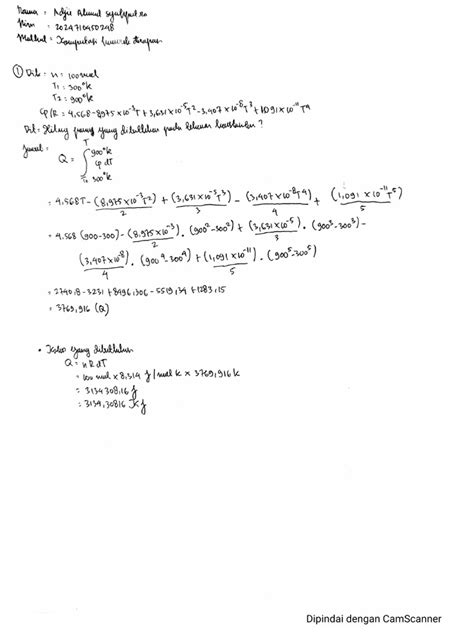 Nama = Adjie Ahmad
Nim = 2024710450248
Matkul = Komputasi Numerik terapan
① Dik = n = 100 mol
T₁ = 300°K
T₂ = 900°K
Cp/R = 4,568 - 8975 x 10⁻³T + 3,631 x 10⁻⁵T² - 3,407 x 10⁻⁸T³ + 1091 x 10⁻¹¹T⁴
Dit = Hitung panas yang dibutuhkan pada tekanan konstan ?
Jawab =
Q = ∫ T 900°K T₁ 300°K Cp dT
= 4.568T - (8,975 x 10⁻³T²)/2 + (3,631 x 10⁻⁵T³)/3 - (3,407 x 10⁻⁸T⁴)/4 + (1,091 x 10⁻¹¹T⁵)/5
= 4.568 (900-300) - (8,975 x 10⁻³)/2 . (900² - 300²) + (3,631 x 10⁻⁵)/3 . (900³ - 300³) -
(3,407 x 10⁻⁸)/4 . (900⁴ - 300⁴) + (1,091 x 10⁻¹¹)/5 . (900⁵ - 300⁵)
= 2740.8 - 3231 + 8496,306 - 5519,34 + 1283,15
= 3769,916 (Q)
• Kalor yang dibutuhkan
Q = n R dT
= 100 mol x 8,314 J/mol K x 3769,916 K
= 3134308,16 J
= 3134,30816 KJ
Dipindai dengan CamScanner